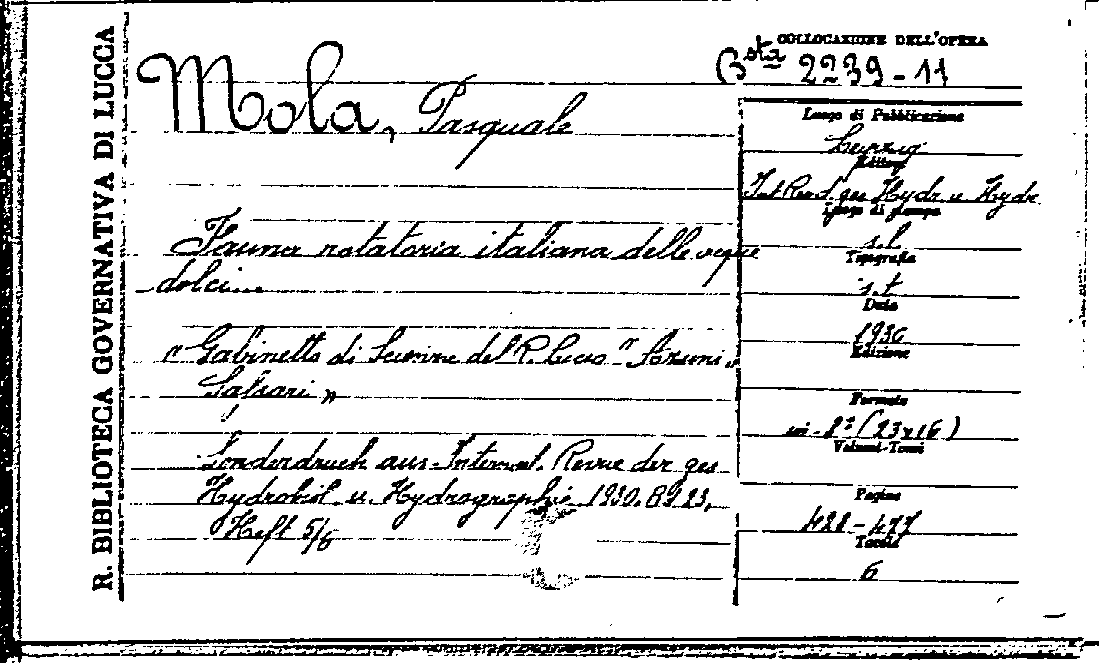 R. BIBLIOTECA GOVERNATIVA DI LUCCA
COLLOCAZIONE DELL'OPERA
Bsta 2239-11
Mola, Pasquale
Fauna natatoria italiana delle acque
dolci...
"Gabinetto di Scienze del R. Liceo "Azuni"
Sassari"
Sonderdruck aus Internat. Revue der ges
Hydrobiol. u. Hydrographie 1930. Bd 23,
Heft 5/6
Luogo di Pubblicazione
Leipzig
Editore
Int Rev. d. ges Hydr. u Hydr.
Luogo di stampa
s. l
Tipografia
s. t
Data
1930
Edizione
Formato
in-8° (23x16)
Volumi-Tomi
Pagine
428-477
Tavole
6